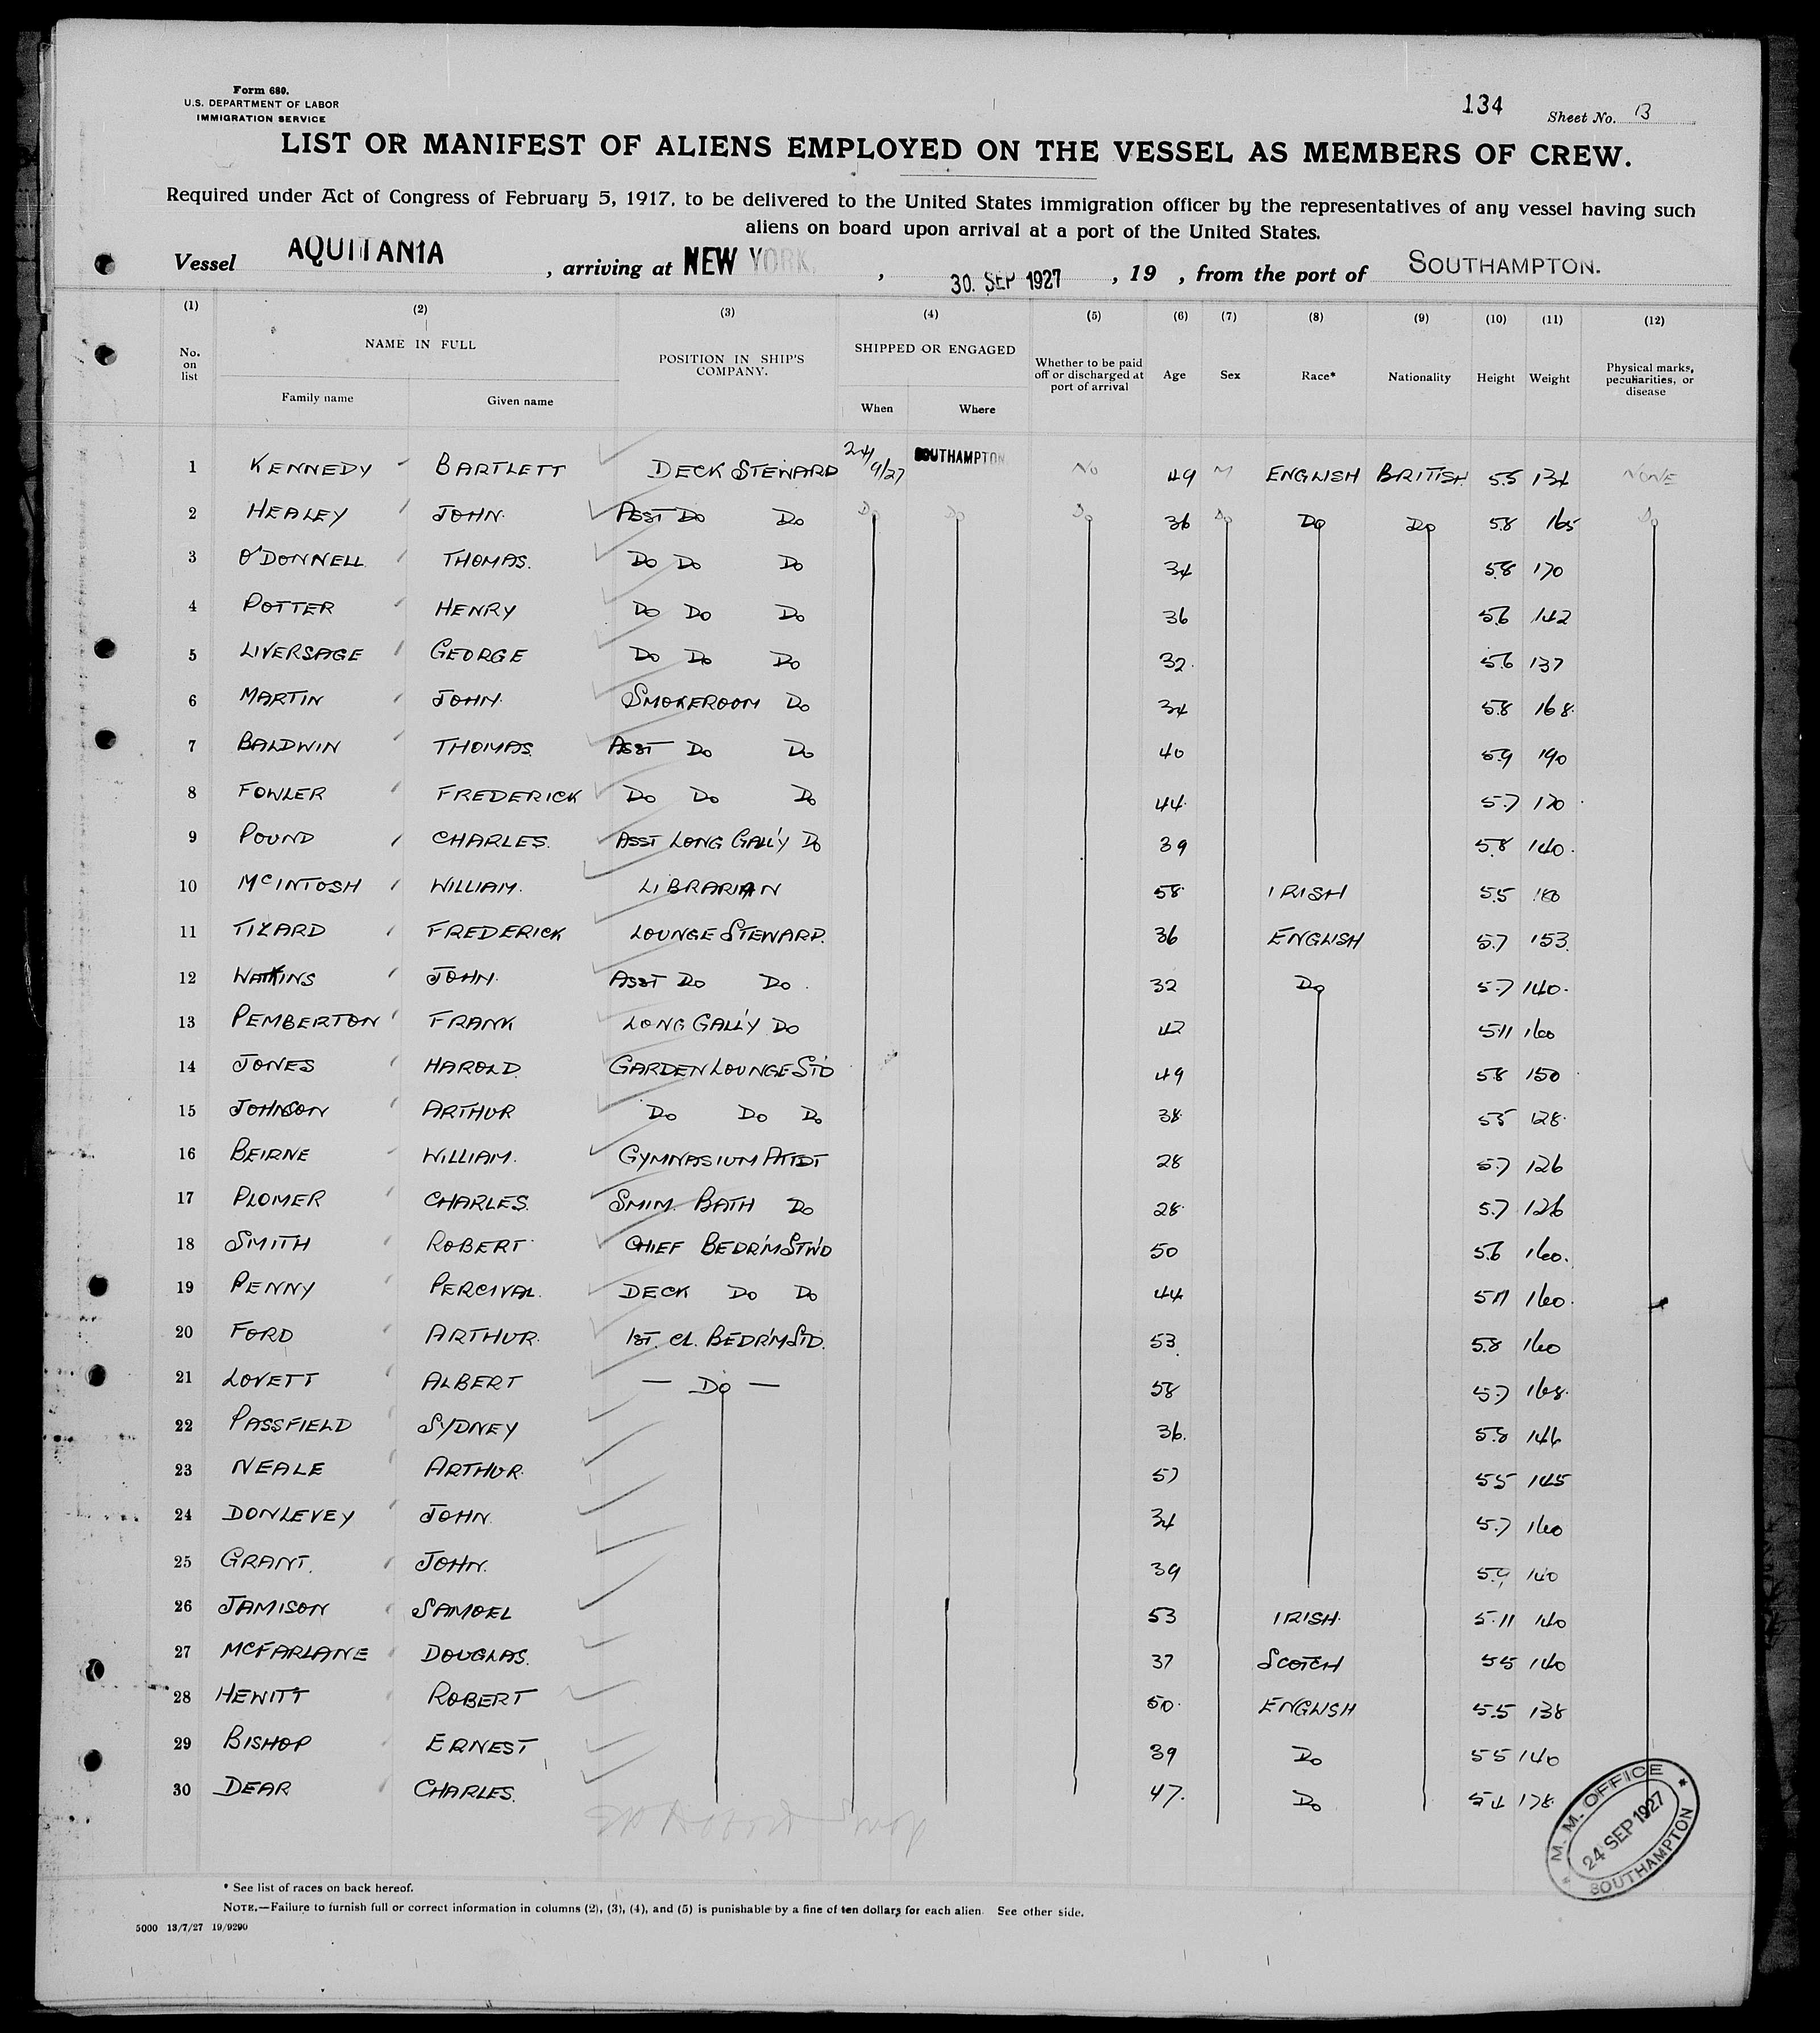 Form 689.
U.S. DEPARTMENT OF LABOR
IMMIGRATION SERVICE
134 Sheet No. 13
LIST OR MANIFEST OF ALIENS EMPLOYED ON THE VESSEL AS MEMBERS OF CREW.
Required under Act of Congress of February 5, 1917, to be delivered to the United States immigration officer by the representatives of any vessel having such
aliens on board upon arrival at a port of the United States.
Vessel AQUITANIA, arriving at NEW YORK, 30. SEP 1927, 19 , from the port of SOUTHAMPTON.
(1) (2) (3) (4) (5) (6) (7) (8) (9) (10) (11) (12)
No. on list NAME IN FULL POSITION IN SHIP'S COMPANY. SHIPPED OR ENGAGED Whether to be paid off or discharged at port of arrival Age Sex Race* Nationality Height Weight Physical marks, peculiarities, or disease
Family name Given name When Where
1 KENNEDY BARTLETT DECK STEWARD 24/9/27 SOUTHAMPTON No 49 M ENGLISH BRITISH 5.5 134 NONE
2 HEALEY JOHN. ASST DO DO DO DO DO 36 DO DO DO 5.8 165 DO
3 O'DONNELL THOMAS. DO DO DO 34 5.8 170
4 POTTER HENRY DO DO DO 36 5.6 142
5 LIVERSAGE GEORGE DO DO DO 32. 5.6 137
6 MARTIN JOHN. SMOKEROOM DO 34 5.8 168.
7 BALDWIN THOMAS. ASST DO DO 40 5.9 190
8 FOWLER FREDERICK DO DO DO 44. 5.7 170
9 POUND CHARLES. ASST LONG GALL'Y DO 39 5.8 140.
10 McINTOSH WILLIAM. LIBRARIAN 58. IRISH 5.5
11 TIZARD FREDERICK LOUNGE STEWARD. 36 ENGLISH 5.7 153.
12 WATKINS JOHN. ASST DO DO. 32 DO 5.7 140.
13 PEMBERTON FRANK LONG GALL'Y DO 42 5.11 160
14 JONES HAROLD. GARDEN LOUNGE ST'D 49 5.8 150
15 JOHNSON ARTHUR DO DO DO 38. 5.5 128.
16 BEIRNE WILLIAM. GYMNASIUM ATTDT 28 5.7 126
17 PLOMER CHARLES. SMIM. BATH DO 28. 5.7 126
18 SMITH ROBERT CHIEF BEDR'M STW'D 50 5.6 160.
19 PENNY PERCIVAL. DECK DO DO 44 5.11 160.
20 FORD ARTHUR. 1ST. Cl. BEDR'M STD. 53. 5.8 160
21 LOVETT ALBERT — DO — 58 5.7 168.
22 PASSFIELD SYDNEY 36. 5.8 146
23 NEALE ARTHUR. 57 5.5 145
24 DONLEVEY JOHN. 34 5.7 160
25 GRANT. JOHN. 39 5.9 140
26 JAMISON SAMUEL 53 IRISH. 5.11 140
27 McFARLANE DOUGLAS. 37 SCOTCH 5.5 140
28 HEWITT ROBERT 50. ENGLISH 5.5 138
29 BISHOP ERNEST 39 DO 5.5 140
30 DEAR CHARLES. 47. DO 5.4 178.
M. M. OFFICE
24 SEP 1927
SOUTHAMPTON
* See list of races on back hereof.
NOTE.—Failure to furnish full or correct information in columns (2), (3), (4), and (5) is punishable by a fine of ten dollars for each alien. See other side.
5000 13/7/27 19/9290